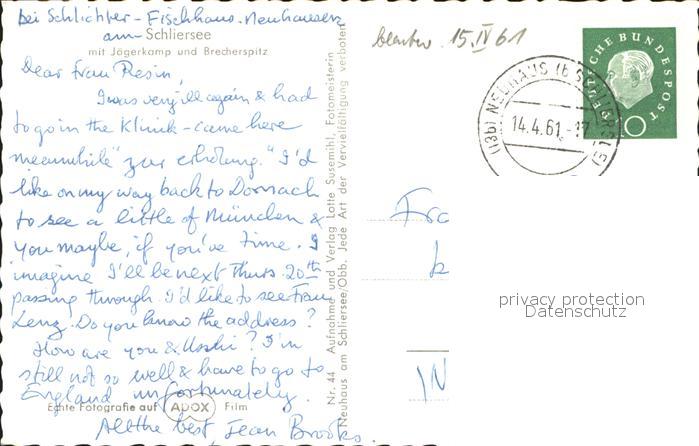 bei Schlichter - Fischhaus. Neuhausen
am - Schliersee
mit Jägerkamp und Brecherspitz
Dear Frau Resin,
I was very ill again & had
to go in the Klinik - came here
meanwhile "zur erholung." I'd
like on my way back to Dornach
to see a little of München &
you maybe, if you've time. I
imagine I'll be next Thurs. 20th
passing through. I'd like to see Frau
Lenz. Do you know the address?
How are you & Uschi? I'm
still not so well & have to go to
England unfortunately.
Echte Fotografie auf APOX Film
All the best Jean Brooks.
Nr. 44 Aufnahme und Verlag Lotte Susemihl, Fotomeisterin
Neuhaus am Schliersee/Obb. Jede Art der Vervielfältigung verboten
15.IV 61
DEUTSCHE BUNDESPOST
10
(13b) NEUHAUS (b SCHLIERSEE)
14.4.61.-17
Fra
privacy protection
Datenschutz